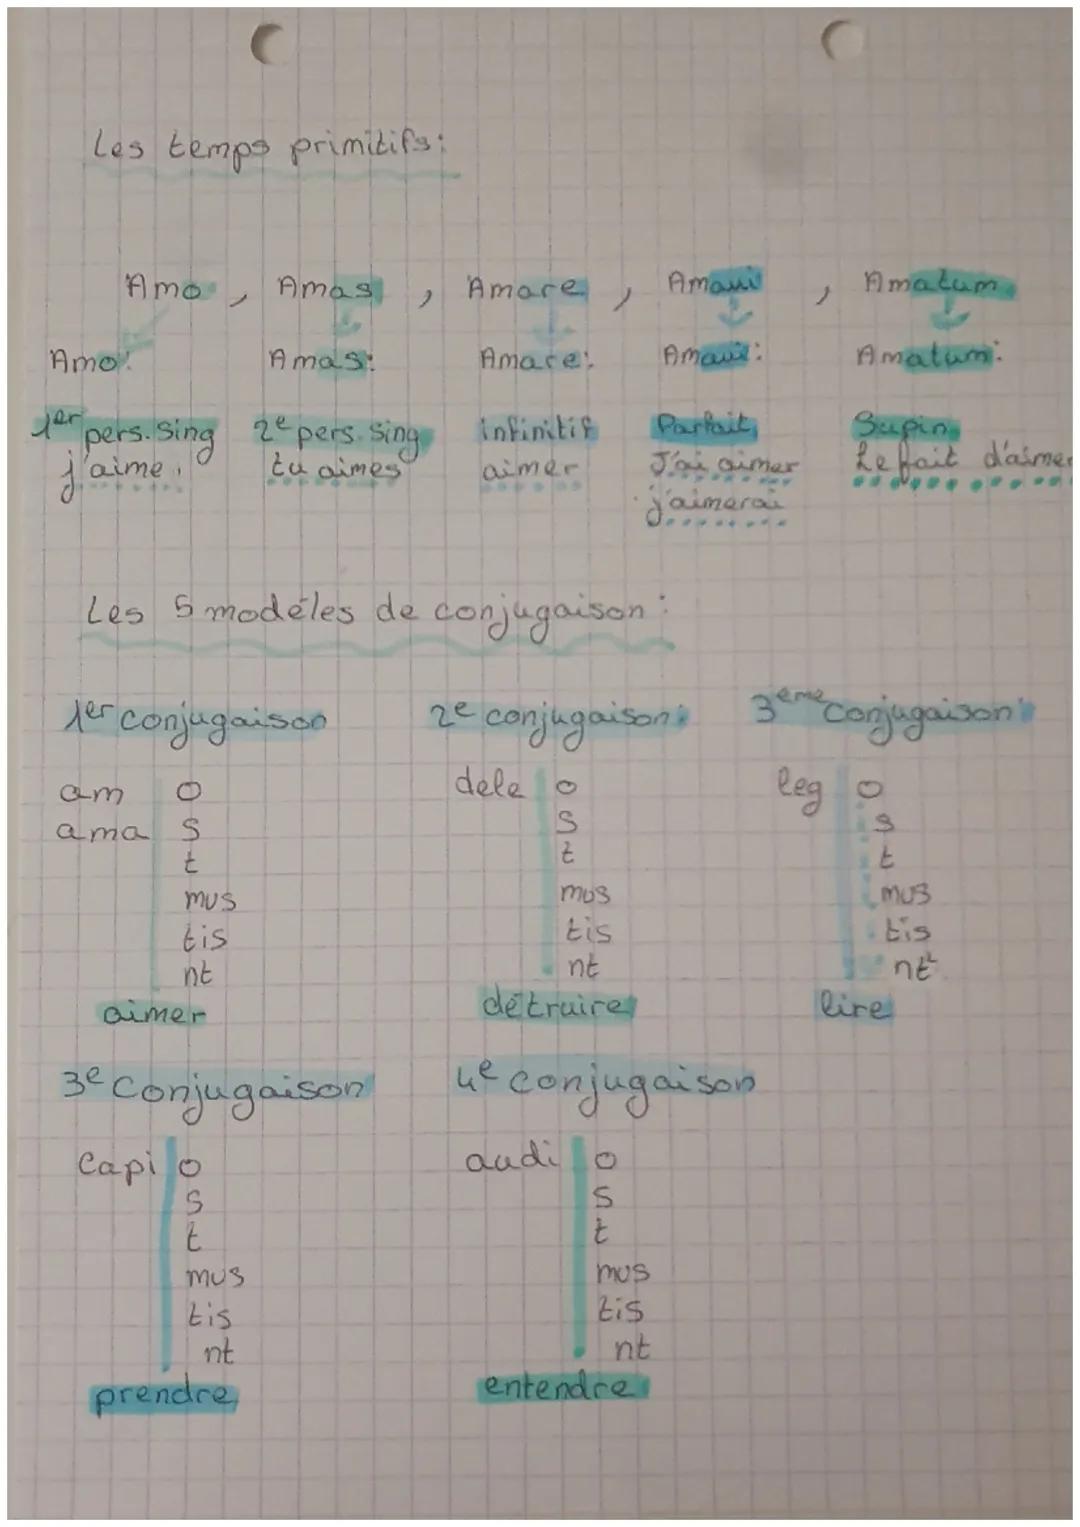 Les temps primitifs:
Amo, Amas, Amare, Amaui, Amatum
Amo: Amas: Amare: Amaui: Amatum:
1er pers. sing 2e pers. sing infinitif Parfait Supin
j'aime tu aimes aimer J'ai aimer Le fait d'aimer
j'aimerai
Les 5 modéles de conjugaison:
1er conjugaison 2e conjugaison: 3eme conjugaison:
am o dele o leg o
ama s s s
t t t
mus mus mus
tis tis tis
nt nt nt
aimer détruire lire
3e Conjugaison 4e conjugaison
Capi o audi o
s s
t t
mus mus
tis tis
nt nt
prendre entendre